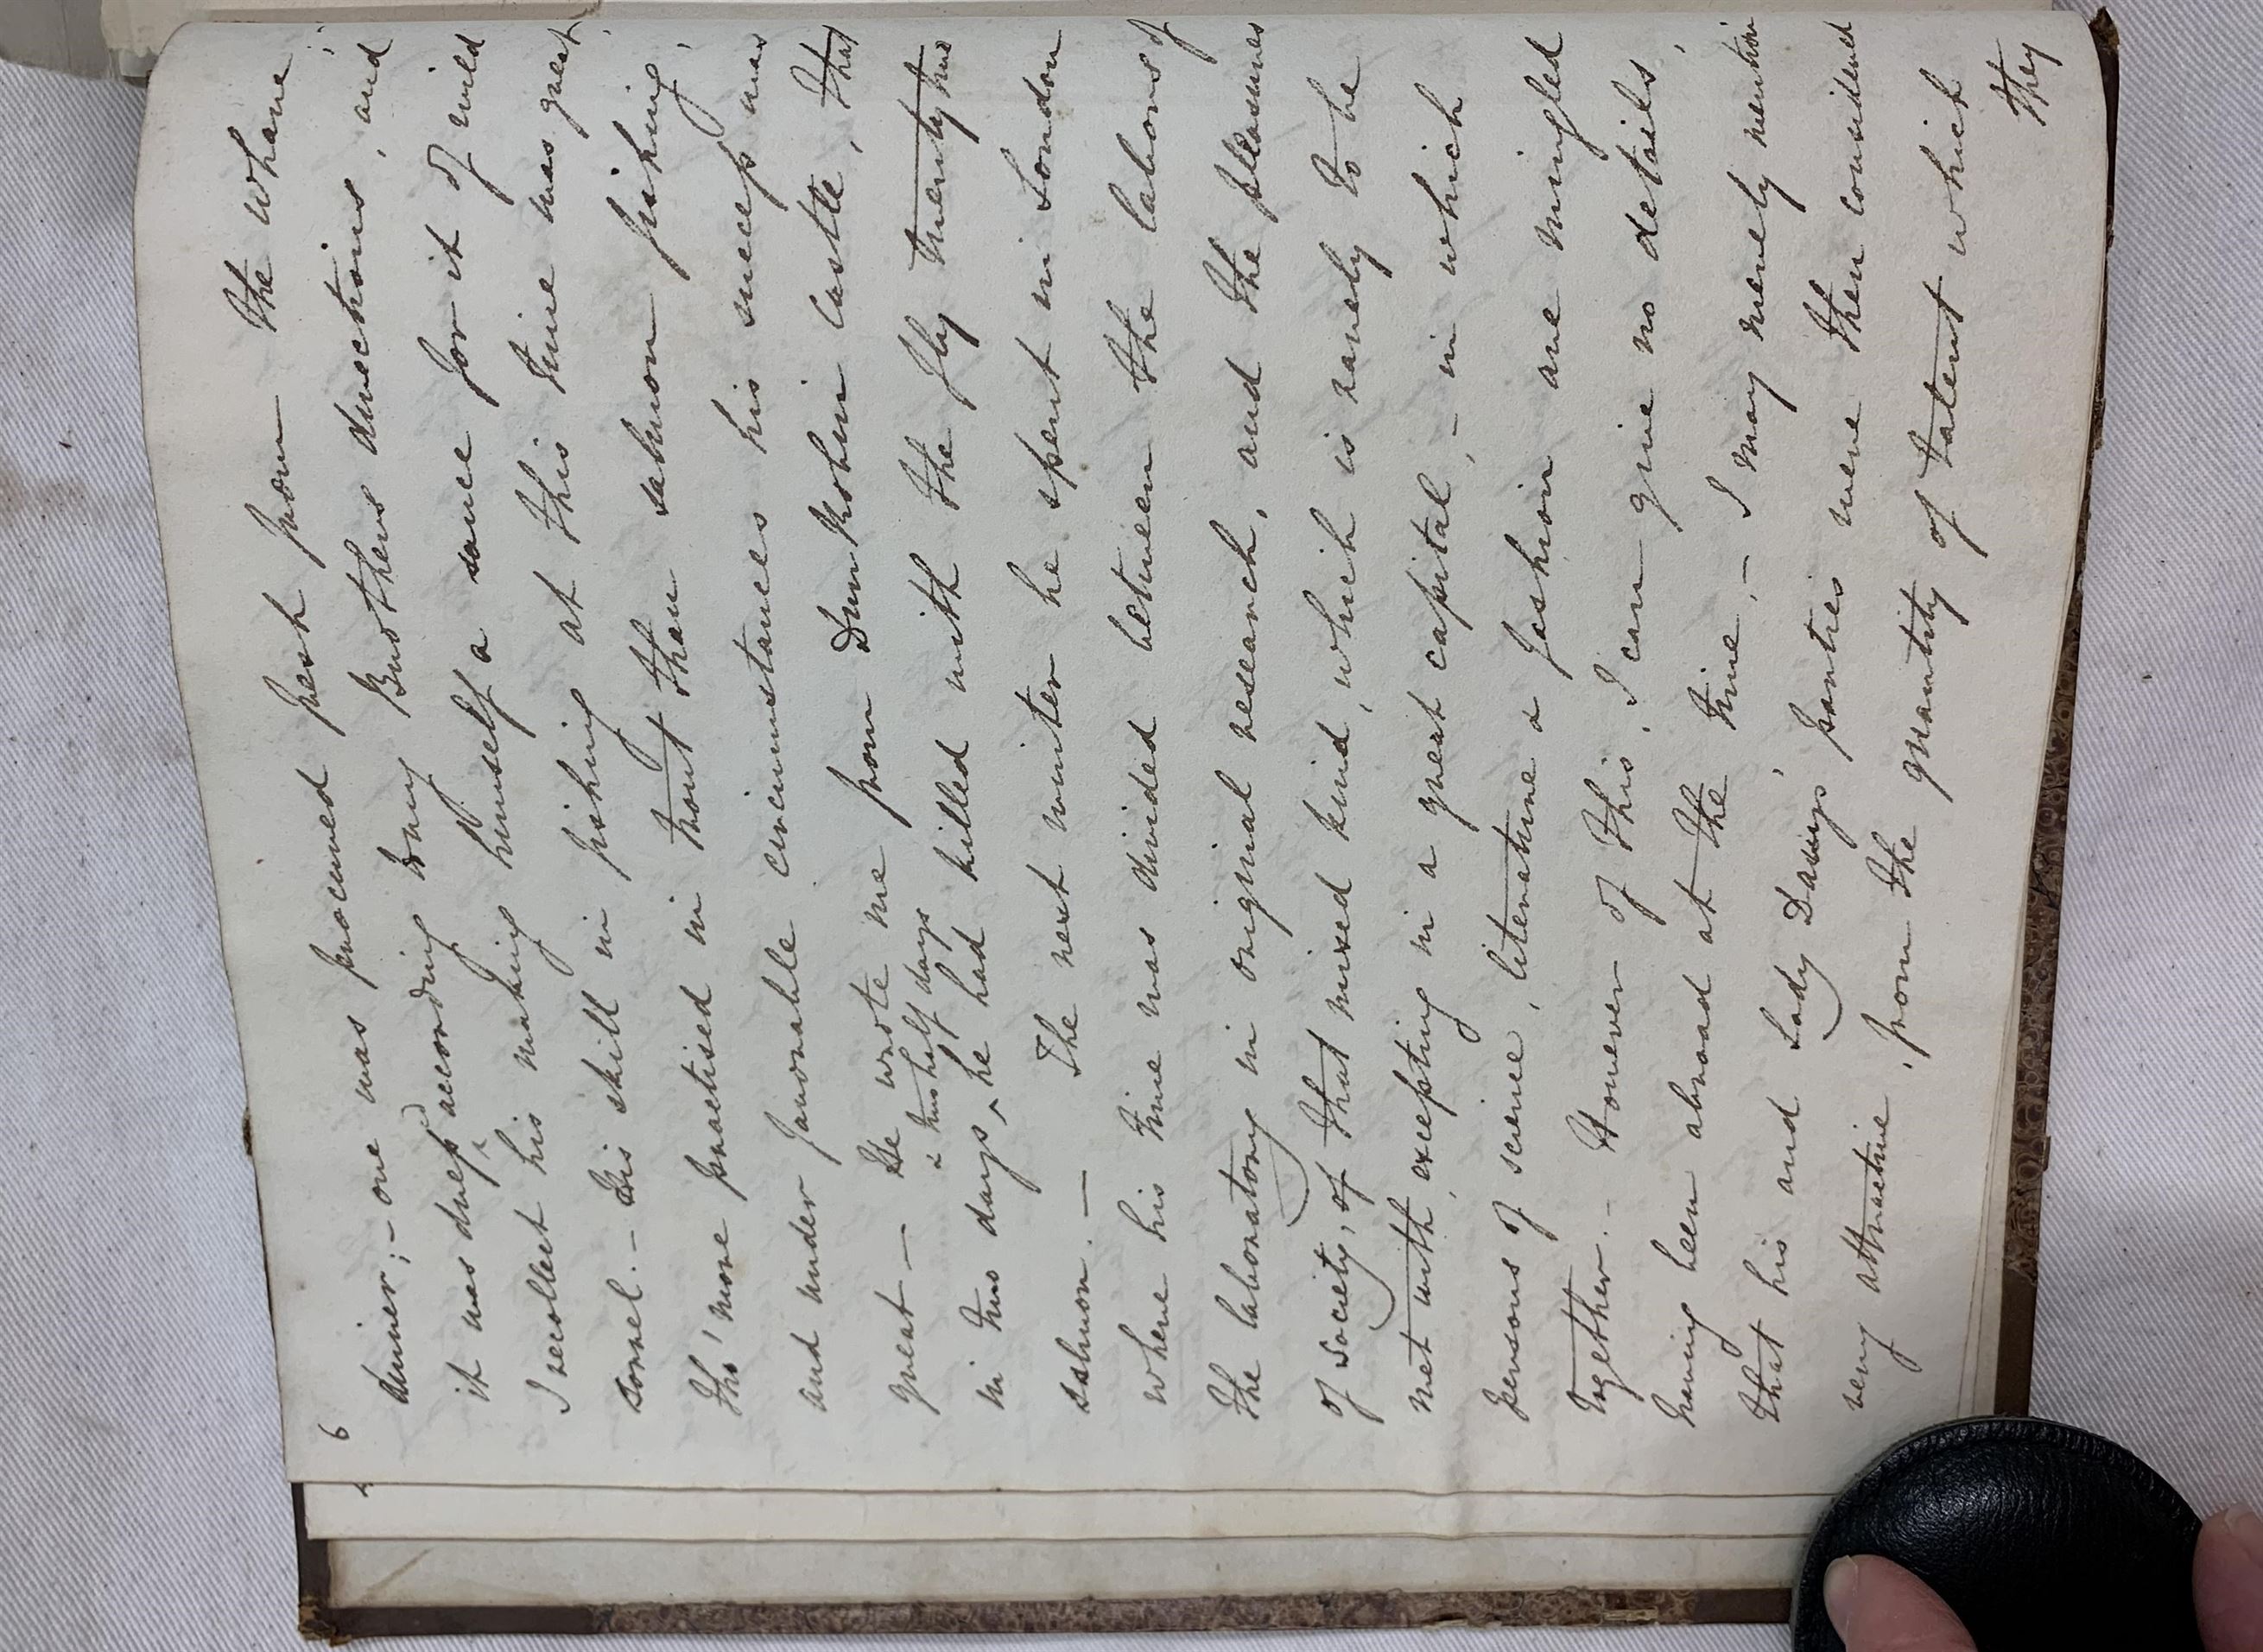 6
dinner; – one was procured fresh from the wharse;
it was drest according to my Brothers directions, and
I recollect his making himself a sauce for it of wild
sorrel. – His skill in fishing at this time was great,
tho' more practised in trout than salmon fishing,
and under favorable circumstances his success was
great — He wrote me from Dunrobin Castle, that
& two half days
in two days, ^ he had killed with the fly twenty two
salmon. — The next winter he spent in London
where his time was divided between the labors of
the laboratory in original research, and the pleasures
of society, of that mixed kind, which is rarely to be
met with, excepting in a great capital, – in which
persons of science, literature & fashion are mingled
together. – However of this, I can give no details,
having been abroad at the time. – I may merely mention
that his and Lady Davys' parties were then considered
very attractive, from the quantity of talent which
they